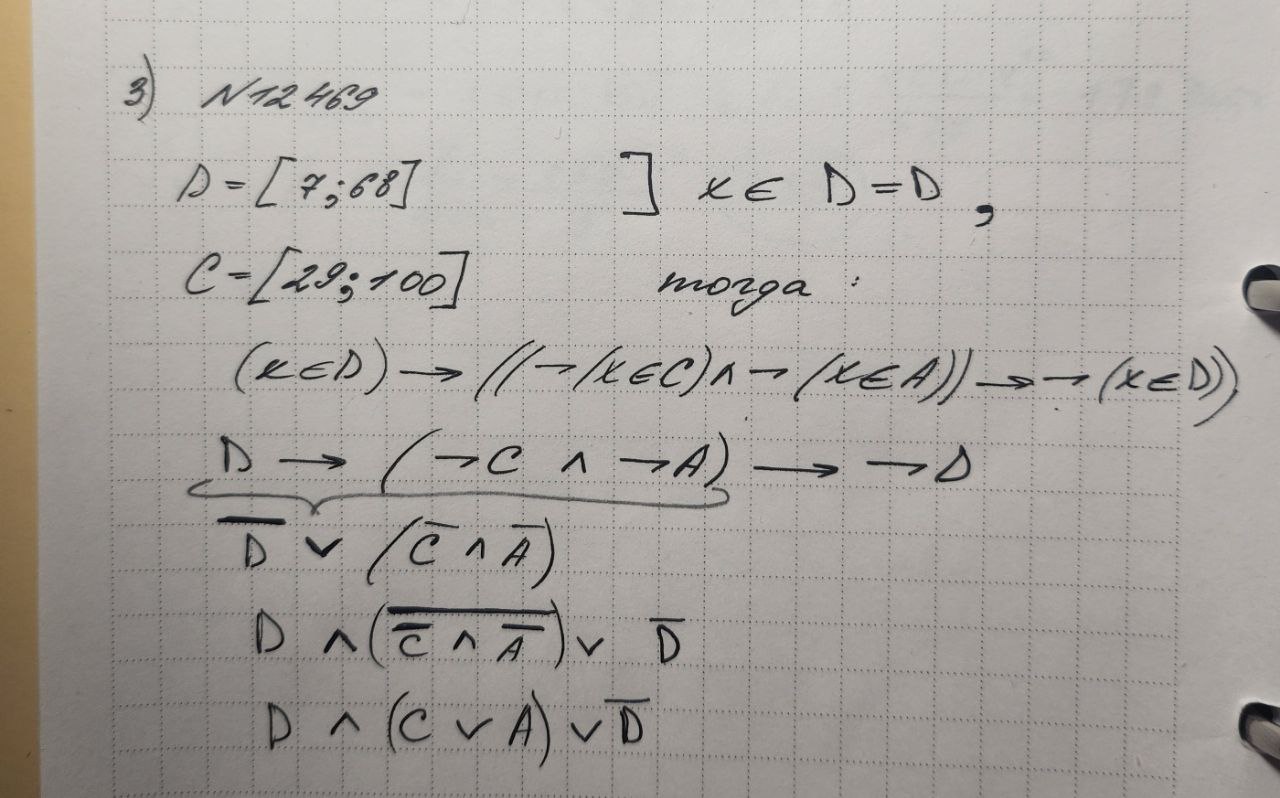 3) N12469
D = [7;68] ] x ∈ D = D,
C = [29;100] тогда:
(x ∈ D) → ((¬(x ∈ C) ∧ ¬(x ∈ A)) → ¬(x ∈ D))
D → (¬C ∧ ¬A) → ¬D
D̅ ∨ (C̅ ∧ A̅)
D ∧ (\overline{C̅ ∧ A̅}) ∨ D̅
D ∧ (C ∨ A) ∨ D̅